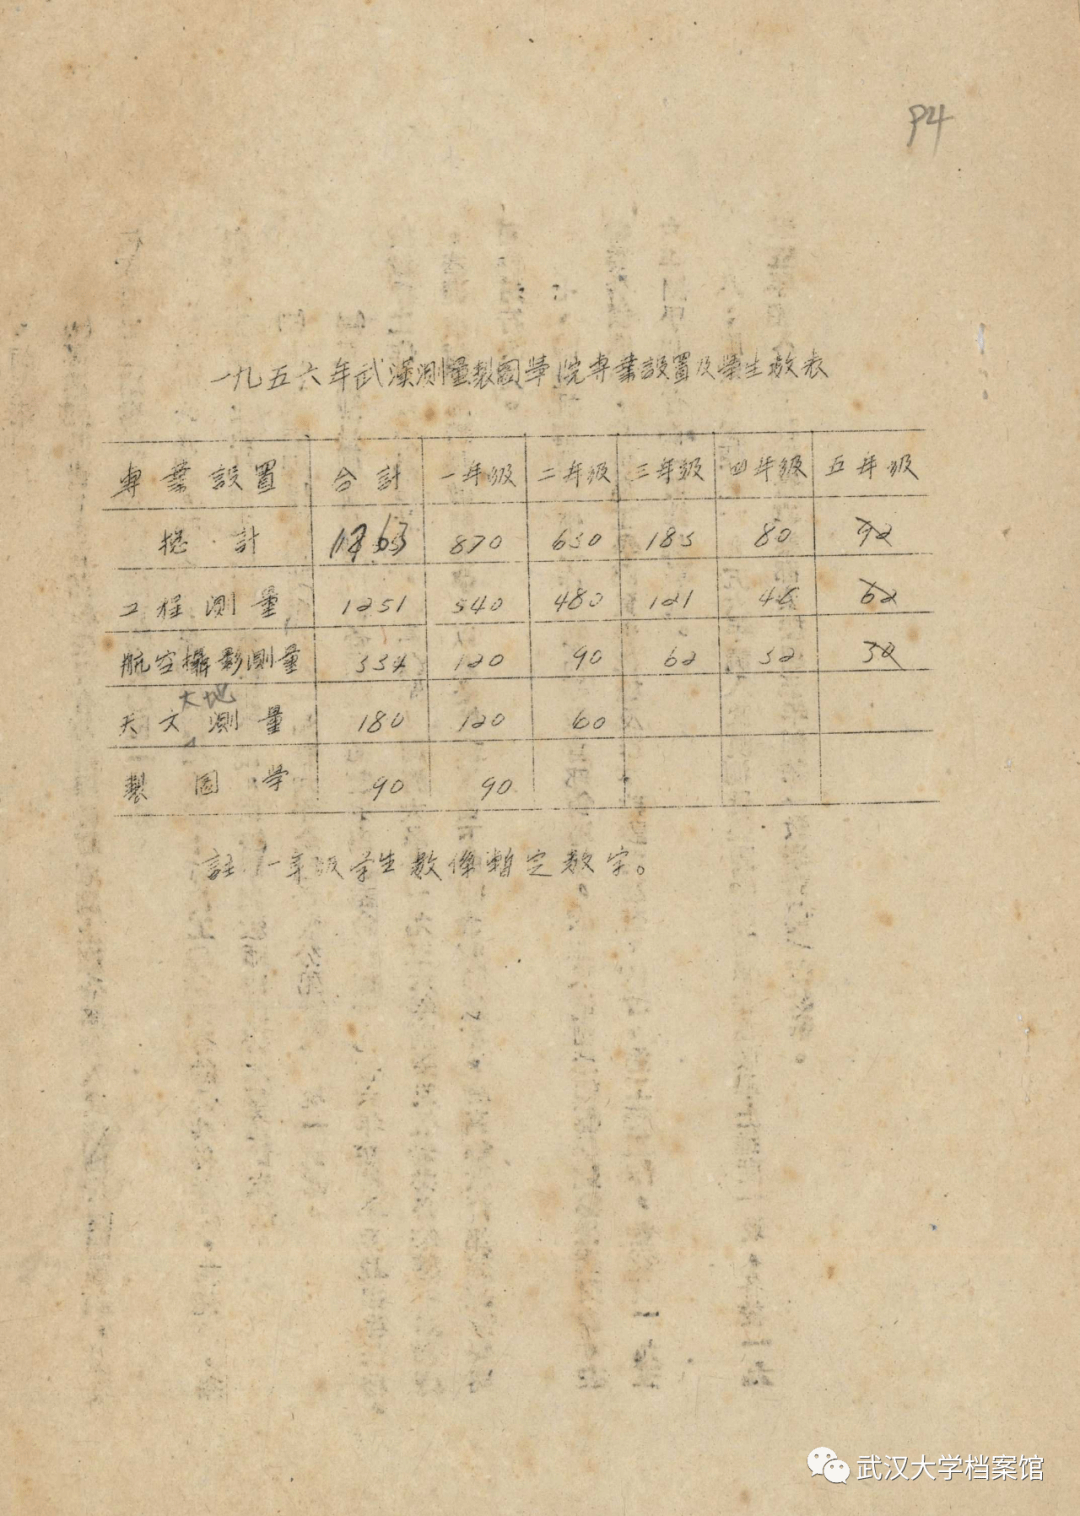 P4
一九五六年武漢測量製圖學院專業設置及學生数表
專業設置 合計 一年級 二年級 三年級 四年級 五年級
揔計 870 630 183 80 92
工程測量 1251 540 480 121 48 62
航空攝影測量 354 120 90 62 32 30
大地
天文測量 180 120 60
製圖学 90 90
註：一年级学生数係暫定数字。
武汉大学档案馆